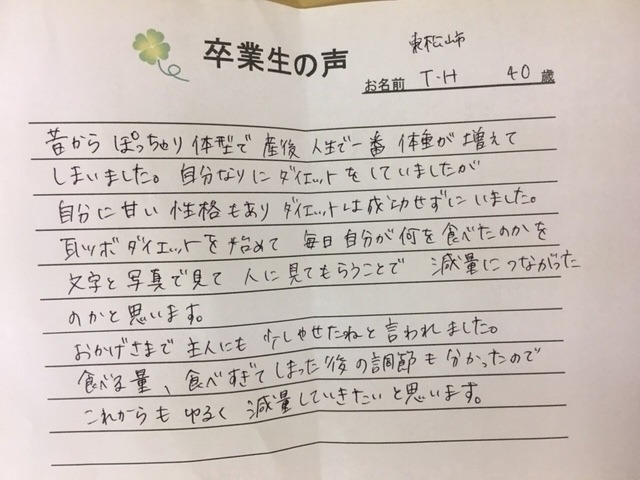 東松山市
卒業生の声
お名前 T・H 40歳
昔から ぽっちゃり 体型で 産後 人生で一番 体重が 増えて
しまいました。自分なりに ダイエット をしていましたが
自分に甘い 性格もあり ダイエットは成功せずにいました。
耳ツボ ダイエットを 始めて 毎日自分が何を食べたのかを
文字と写真で見て 人に見てもらうことで 減量につながった
のかと思います。
おかげさまで 主人にも 少しやせたねと言われました。
食べる量、食べすぎてしまった後の調節も分かったので
これからも ゆるく 減量していきたいと思います。